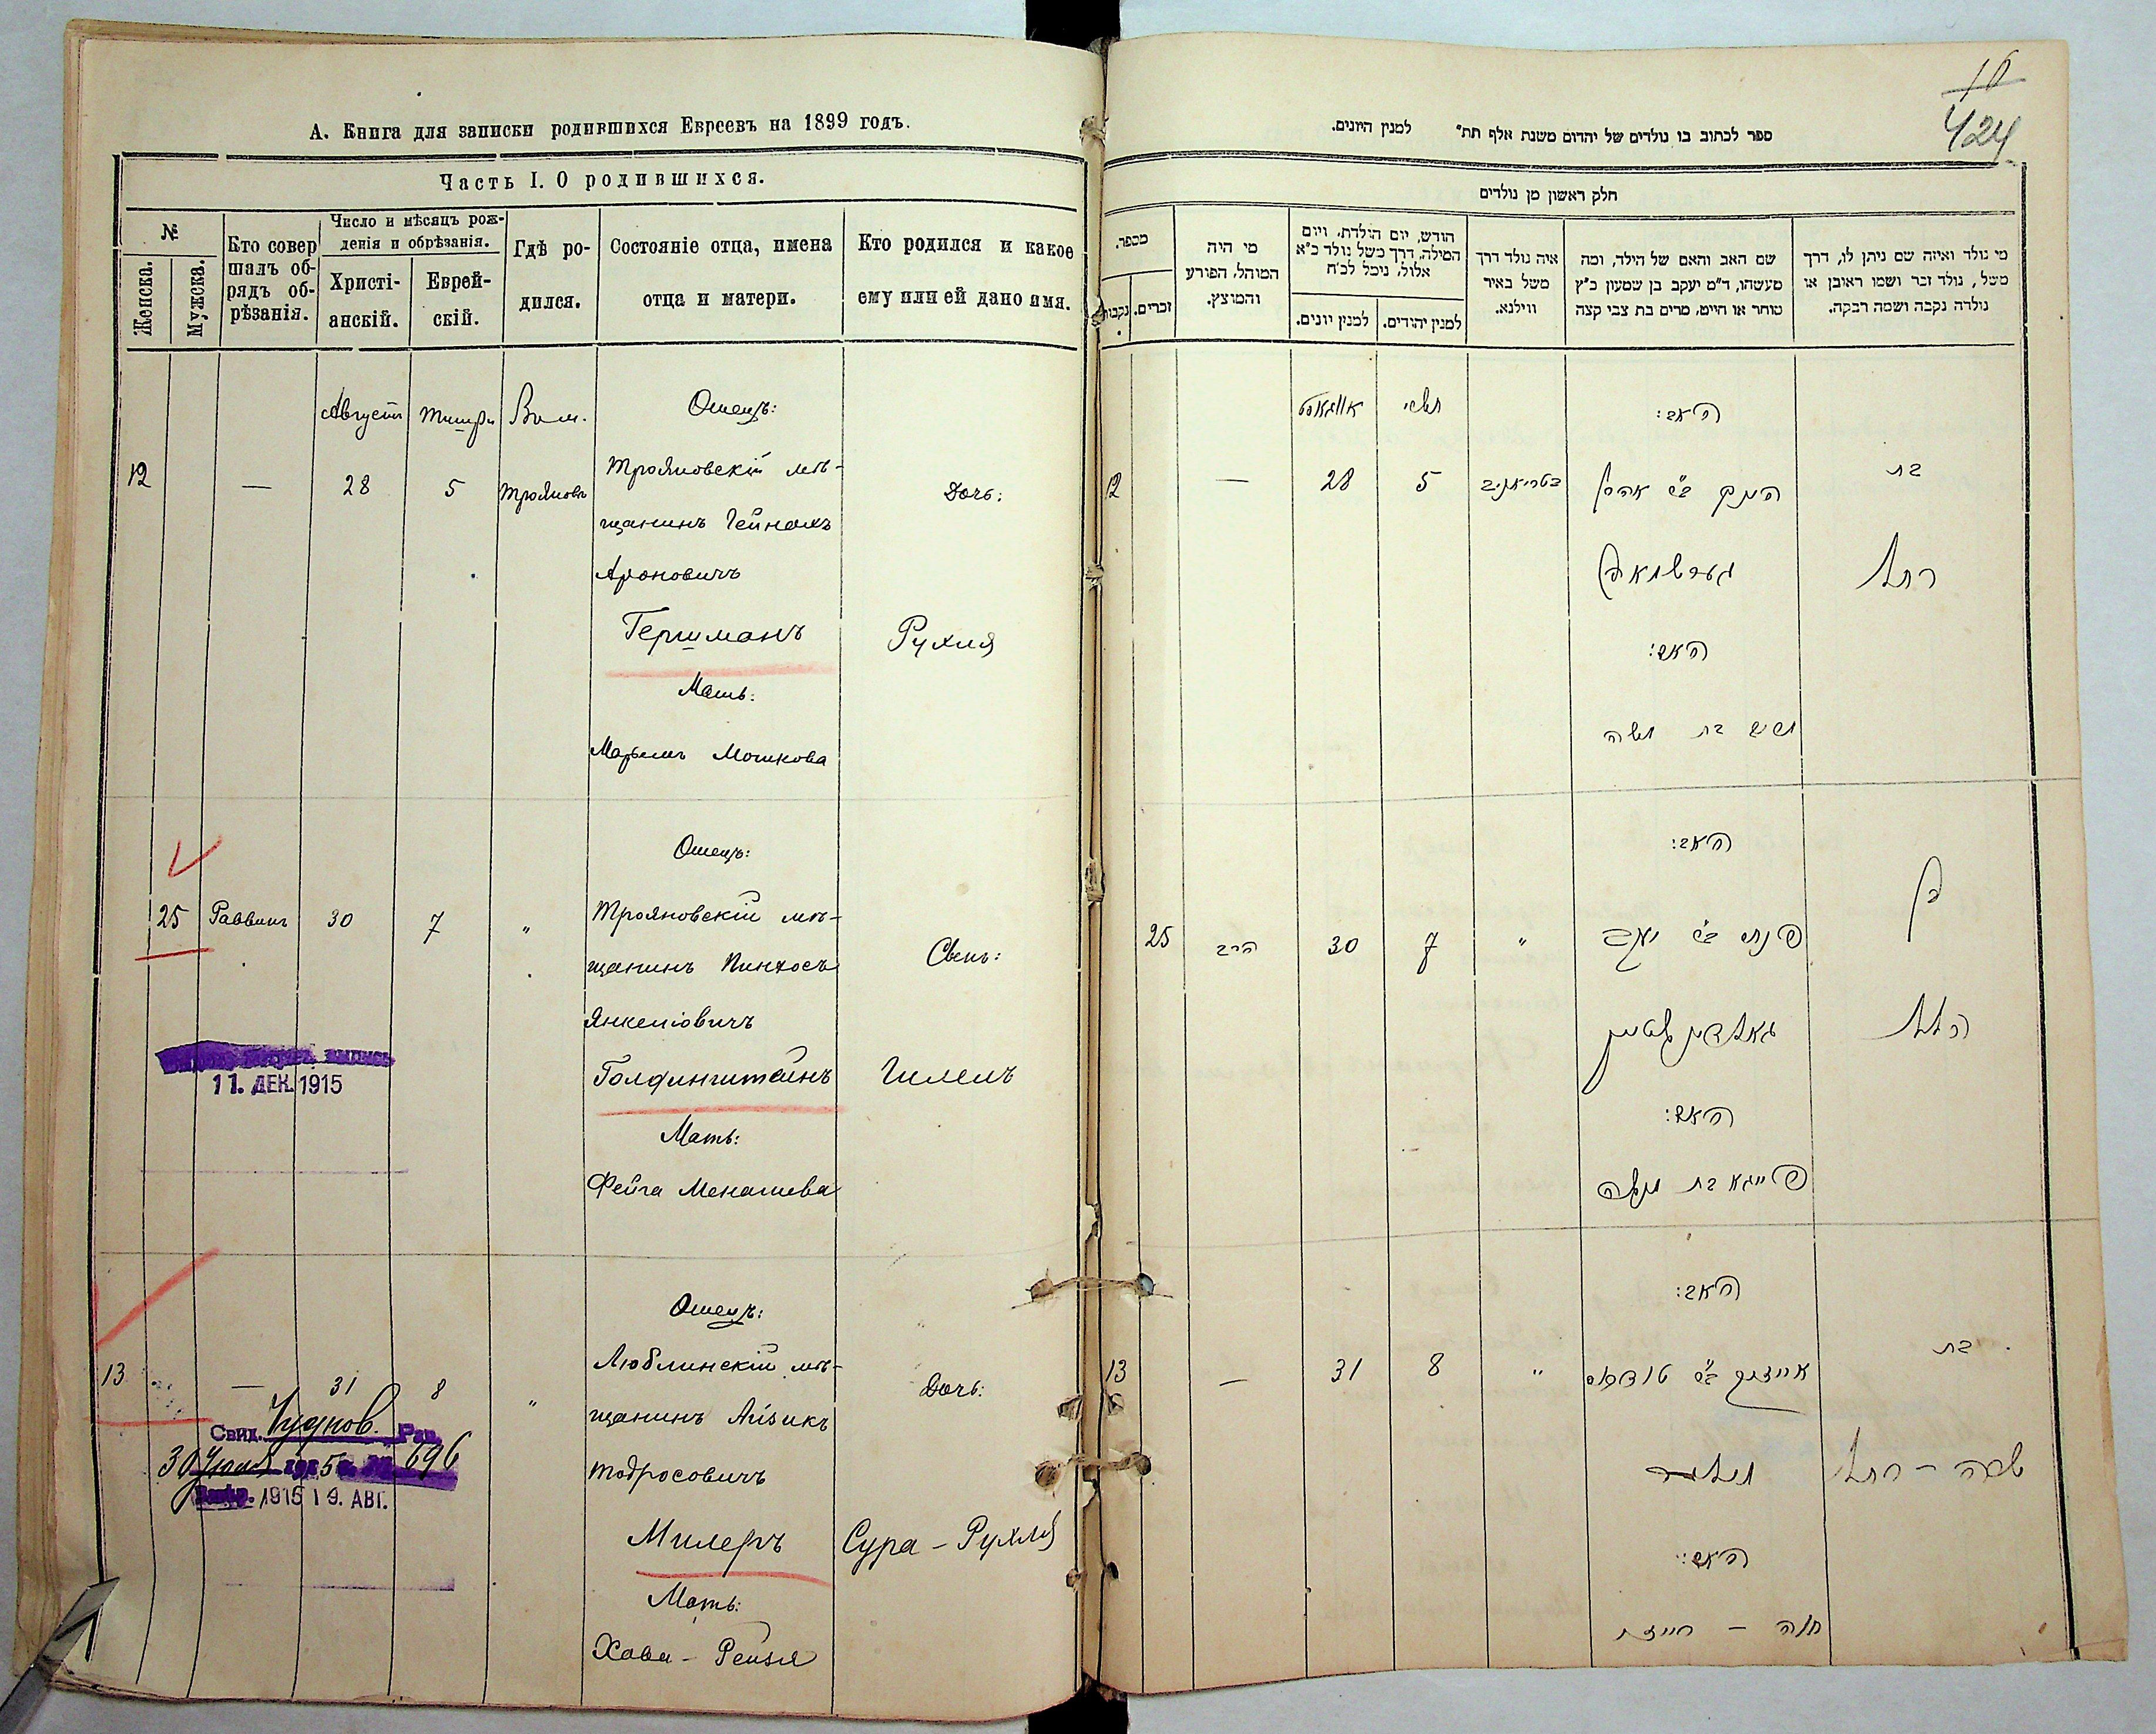 А. Книга для записки родившихся Евреевъ на 1899 годъ.
Часть I. О родившихся.
№
Женска.
Мужска.
Кто совер
шалъ об-
рядъ об-
рѣзанія.
Число и мѣсяцъ рож-
денія и обрѣзанія.
Христі-
анскій.
Еврей-
скій.
Гдѣ ро-
дился.
Состояніе отца, имена
отца и матери.
Кто родился и какое
ему или ей дано имя.
Августъ Тишри Вом. Отецъ:
12 — 28 5 Трояновъ Трояновскій мѣ-
щанинъ Гейнохъ
Дочь:
Ароновичъ
Гершманъ
Рухля
Мать:
Марьемъ Мошкова
Отецъ:
25 Раввинъ 30 7 " Трояновскій мѣ-
щанинъ Пинхосъ
Сынъ:
Янкелювичъ
Голдинштейнъ
Гилелъ
11. ДЕК. 1915
Мать:
Фейга Менашева
Отецъ:
13 — 31 8 " Люблинскій мѣ-
щанинъ Айзикъ
Дочь:
Тодросовичъ
Милеръ
Сура - Рухля
Свид. Чуднов. Рав.
30 696
1915 19. АВГ.
Мать:
Хава - Рейзя
16
424
ספר לכתוב בו נולדים של יהדום משנת אלף תת" למנין היונים.
חלק ראשון מן נולדים
מספר.
נקבות
זכרים.
מי היה
המוהל, הפורע
והמוצץ.
חודש, יום הולדת, ויום
המילה, דרך משל נולד כ"א
אלול, ניכל לכ"ח
למנין יונים.
למנין יהודים.
איה נולד דרך
משל באיר
ווילנא.
שם האב והאם של הילד, ומה
מעשהו, ד"מ יעקב בן שמעון כ"ץ
סוחר או חייט, מרים בת צבי קצה
מי נולד ואיזה שם ניתן לו, דרך
משל, נולד זכר ושמו ראובן או
נולדה נקבה ושמה רבקה.
אווגוסט תשרי האב:
12 — 28 5 בטריאניב
בת
גערשמאן
רחל
האם:
מרים בת משה
האב:
בן
25 הרב 30 7 " פנחס ב"ר יעקב
הלל
האם:
פייגא בת מנשה
האב:
בת
13 — 31 8 " אייזיק ב"ר טודרוס
מילער
שרה - רחל
האם:
חוה - רייזא